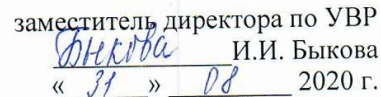 заместитель директора по УВР
Быкова И.И. Быкова
« 31 » 08 2020 г.